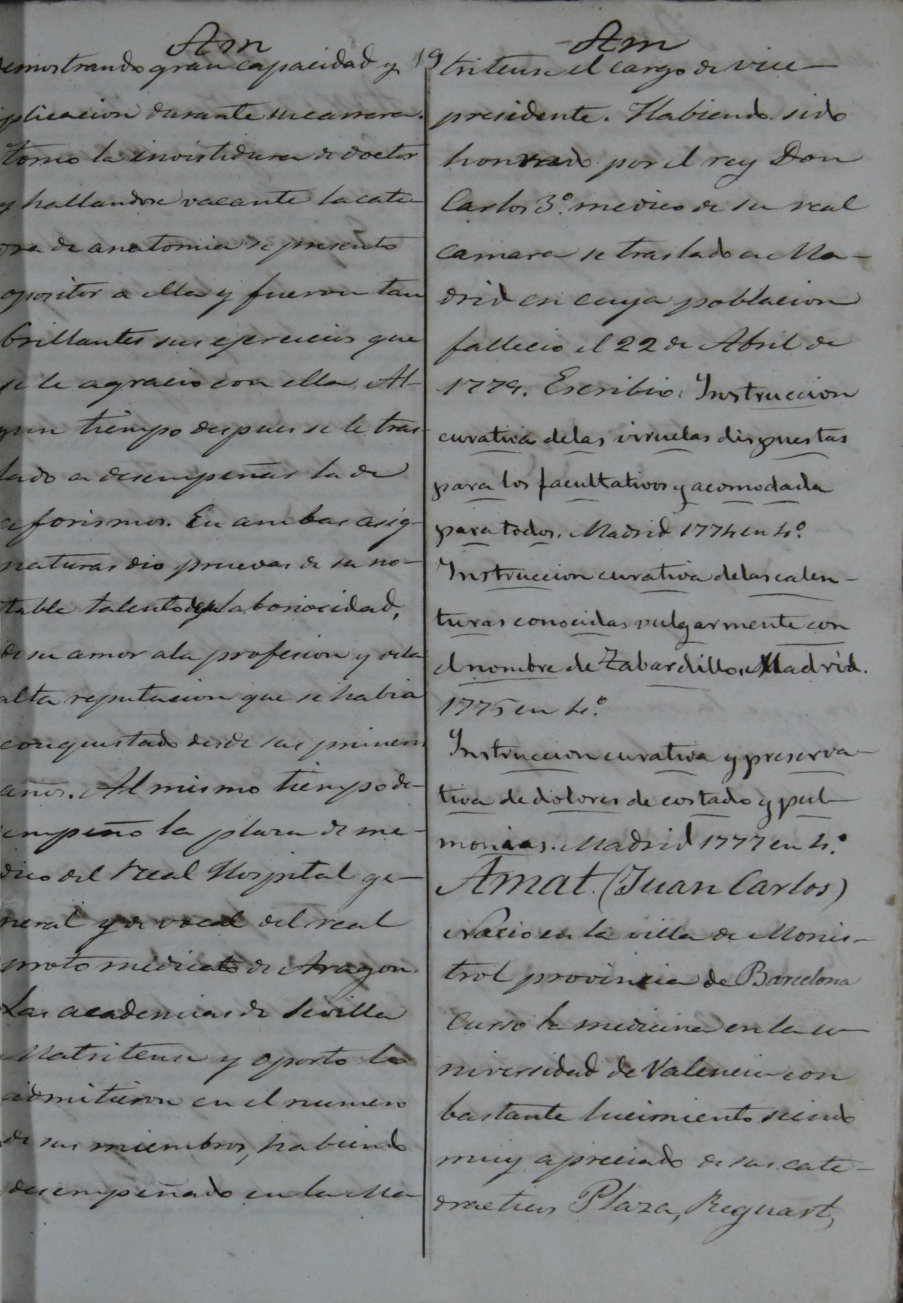 Am
demostrando gran capacidad y
aplicacion durante su carrera.
tomo la investidura de doctor
y hallandose vacante la cate-
dra de anatomia se presento
opositor a ella y fueron tan
brillantes sus ejercicios que
se le agracio con ella. Al-
gun tiempo despues se le tras-
lado a desempeñar la de
aforismos. En ambas asig-
naturas dio pruevas de su no-
table talento y laboriocidad,
de su amor a la profesion y de la
alta reputacion que se habia
conquistado desde sus primeros
años. Al mismo tiempo de-
empeño la plaza de me-
dico del Real Hospital ge-
neral y de vocal del real
proto medicato de Aragon.
Las academias de Sevilla
Matritense y Oporto lo
admitieron en el numero
de sus miembros, habiendo
desempeñado en la Ma
19
Am
tritense el cargo de vice-
presidente. Habiendo sido
honrado por el rey Don
Carlos 3º. medico de su real
camara se traslado a Ma-
drid en cuya poblacion
fallecio el 22 de Abril de
1779. Escribio: Instruccion
curativa de las viruelas dispuestas
para los facultativos y acomodada
para todos. Madrid 1774 en 4º.
Instruccion curativa de las calen-
turas conocidas vulgarmente con
el nombre de Tabardillo. Madrid.
1775 en 4º.
Instruccion curativa y preserva-
tiva de dolores de costado y pul-
monias. Madrid 1777 en 4º.
Amat. (Juan Carlos)
Nacio en la villa de Monis-
trol provincia de Barcelona
Curso la medicina en la u-
niversidad de Valencia con
bastante lucimiento siendo
muy apreciado de sus cate-
draticos Plaza, Reguart,